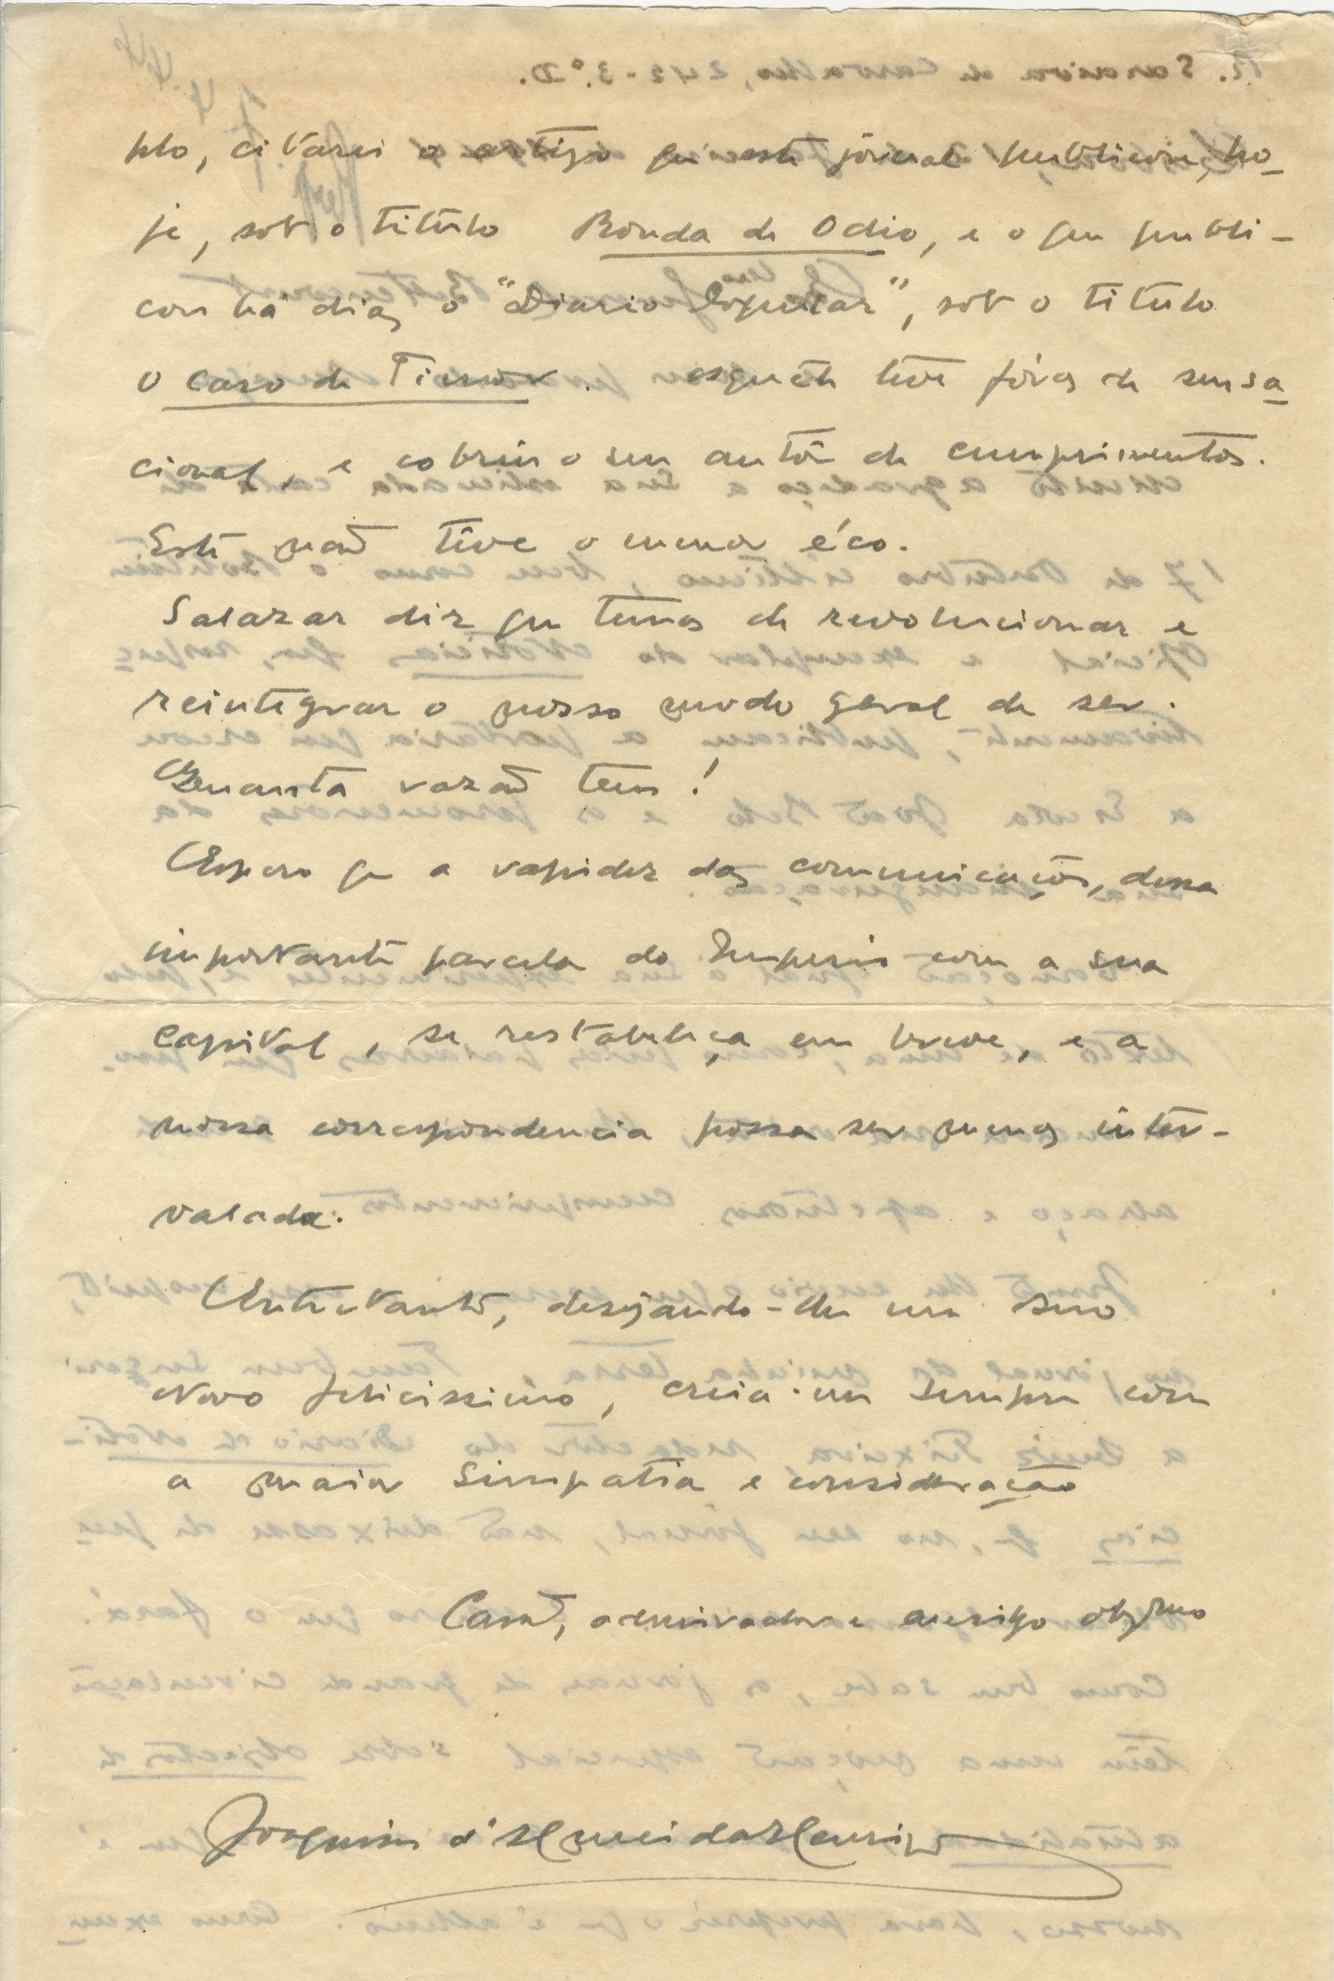 plo, citarei o artigo que este jórnal publicou, ho-
je, sob o titulo Ronda de Odio, e o que publi-
cou há dias o "Diario Popular", sob o titulo
O caso de Timor. aquêle teve fóros de sensa-
cional, e cobriu o seu autôr de cumprimentos.
Este não têve o menor éco.
Salazar diz que temos de revolucionar e
reintegrar o nosso modo geral de ser.
Quanta razão tem!
Espero que a rapidez das comunicações, dessa
importante parcela do Imperio com a sua
capital, se restabeleça em breve, e a
nossa correspondencia possa ser menos inter-
valada.
Entretanto, desejando-lhe um Ano
Novo felicissimo, creia-me sempre com
a maior simpatia e consideração
Camª, admirador e amigo obgmo
Joaquim d'Almeida Henriques